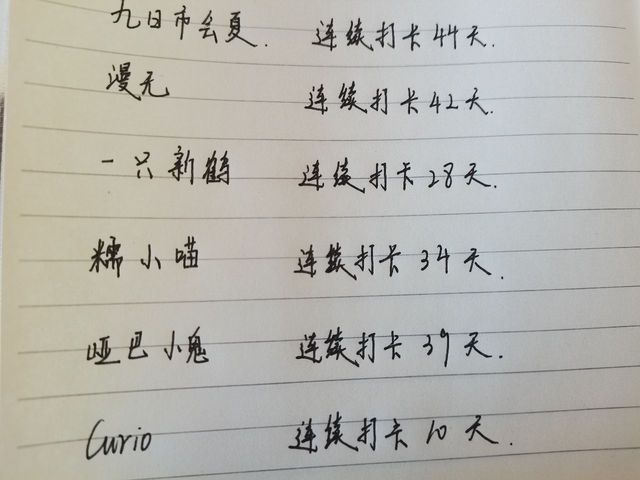 九日市会夏. 连续打卡44天.
漫无 连续打卡42天.
一只新鹤 连续打卡28天.
糯小喵 连续打卡34天.
哑巴小鬼 连续打卡39天.
Curio 连续打卡10天.